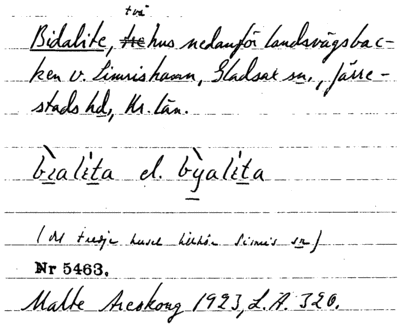 två
Bidalite, hus nedanför landsvägsbac-
ken v. Simrishamn, Gladsax sn., Järre-
stads hd, Kr. län.
bìalíta el. bỳalíta
(det tredje huset tillhör Simris sn)
Nr 5463.
Malte Areskoug 1923, L.A. 326.